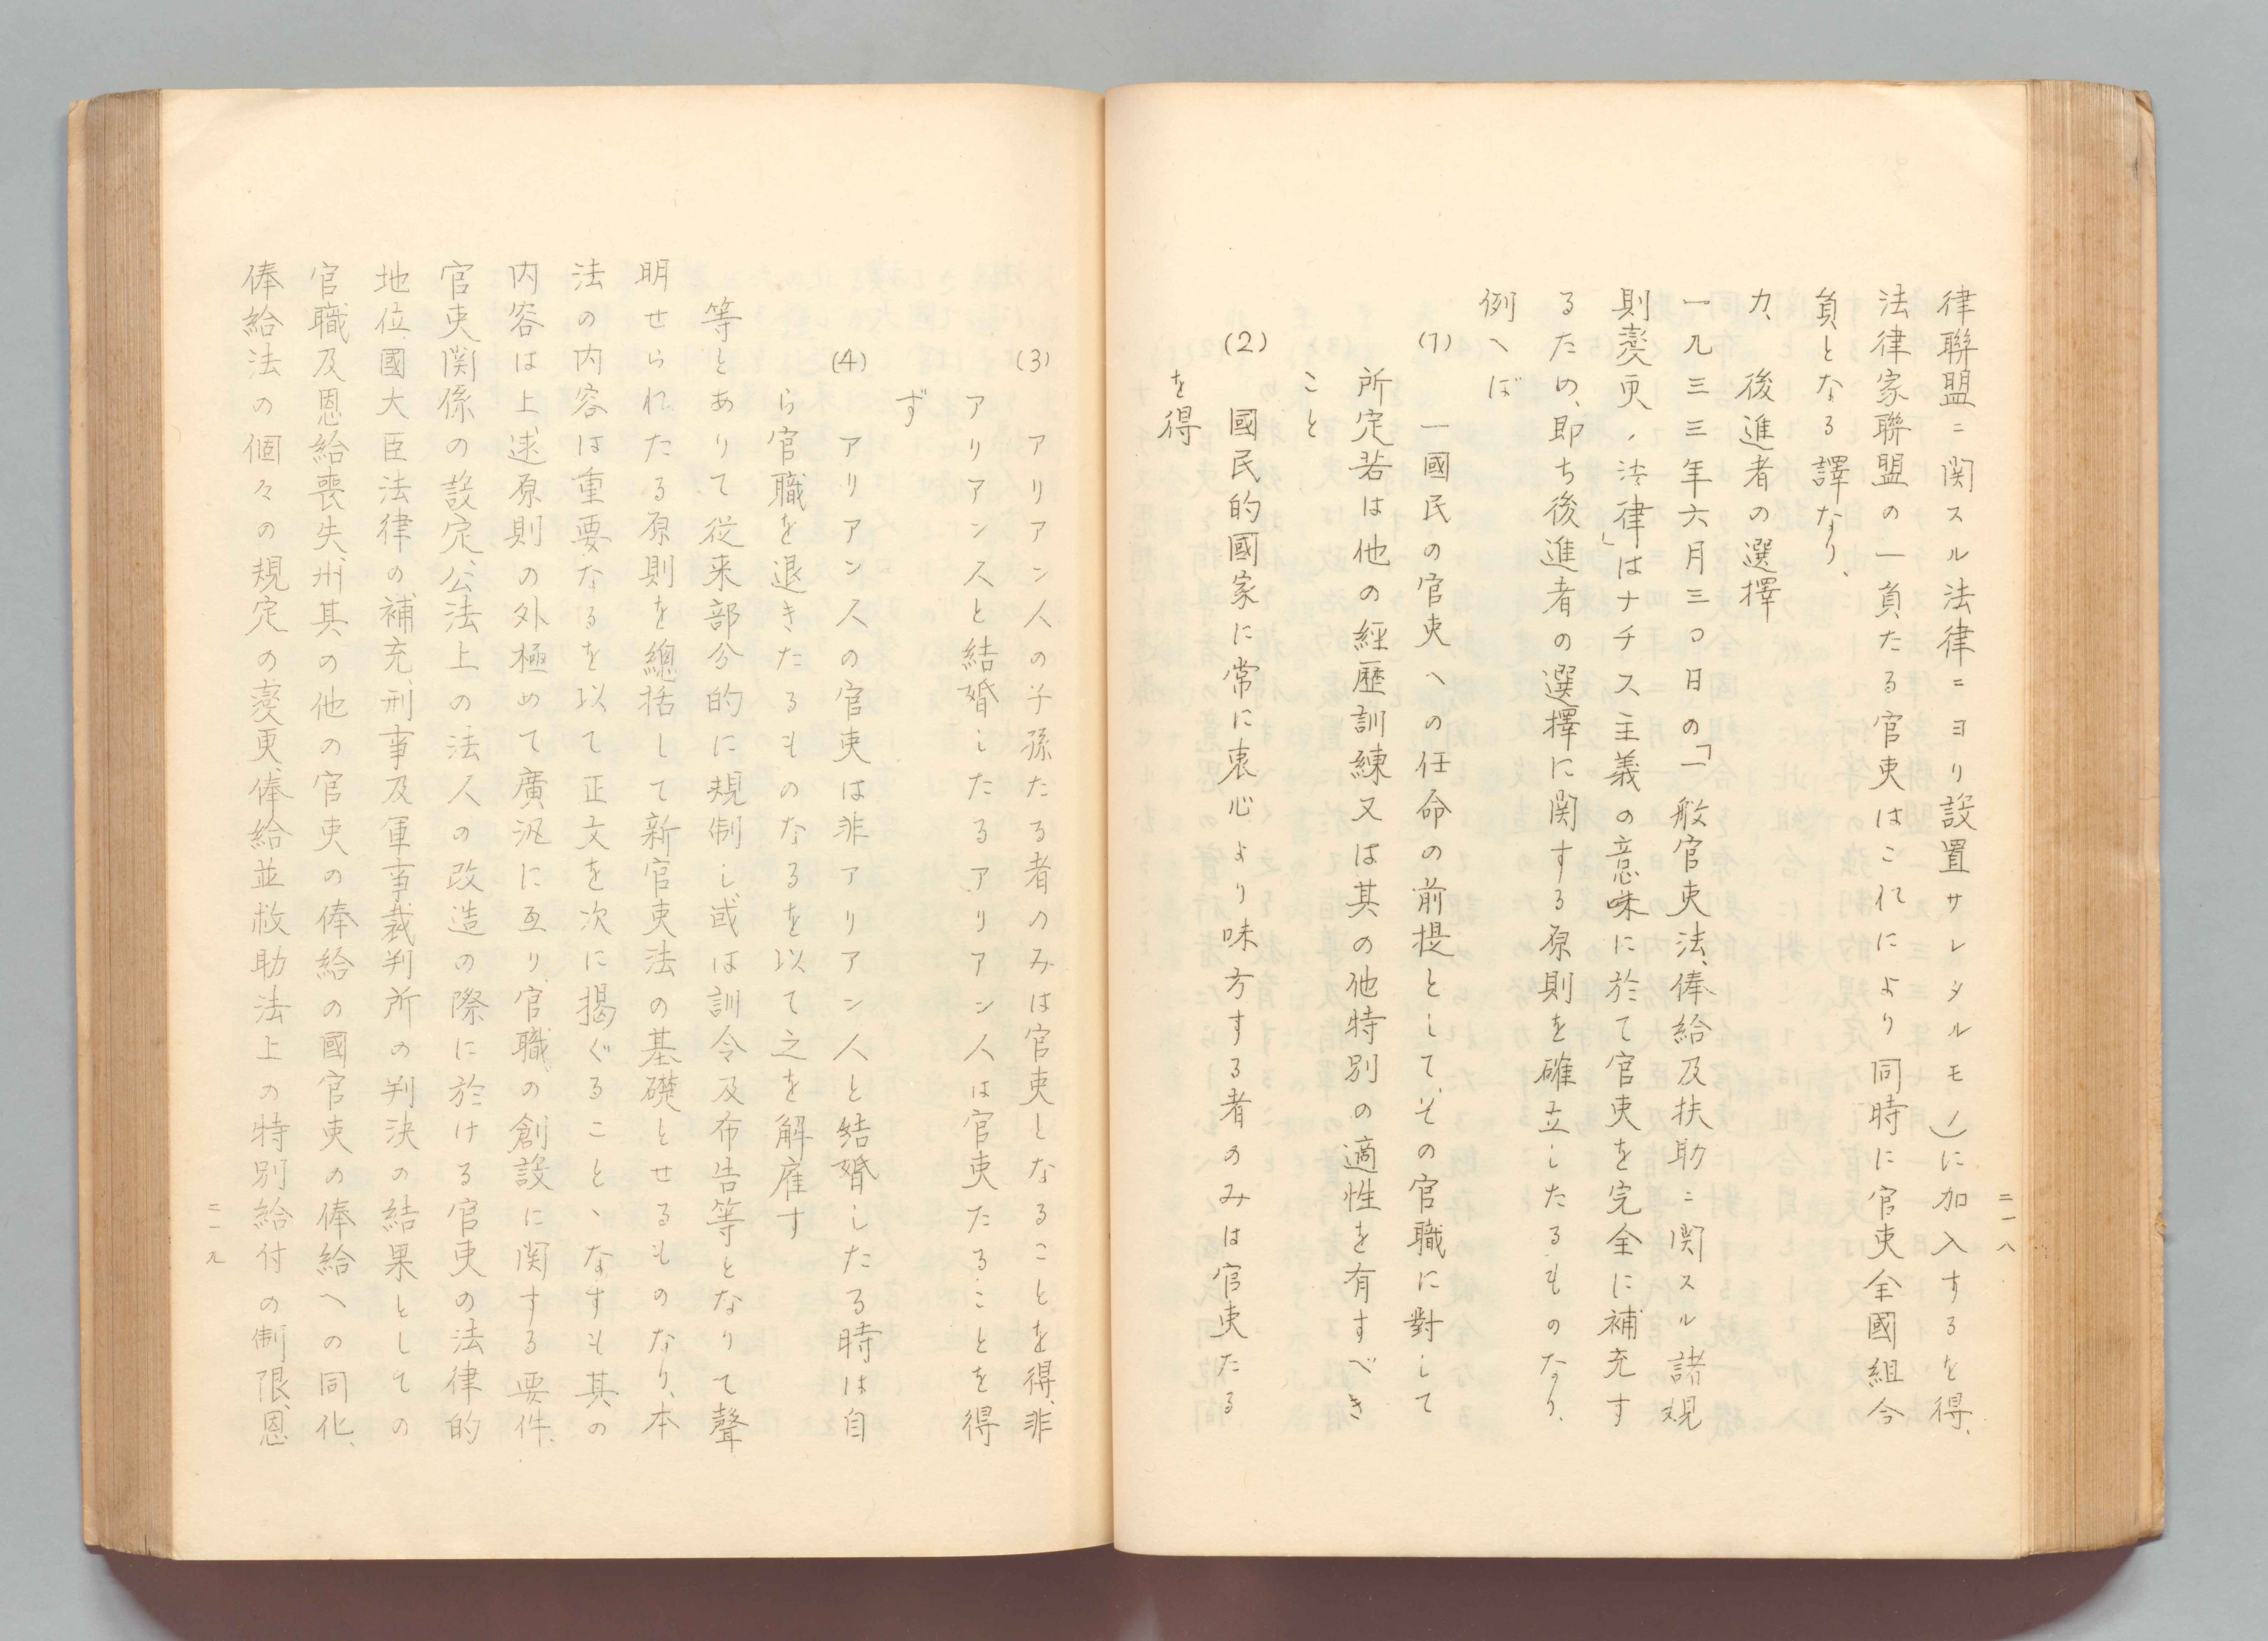 二一八
律聯盟ニ関スル法律ニヨリ設置サレタルモノ)に加入するを得、
法律家聯盟の一員たる官吏はこれにより同時に官吏全國組合
員となる譯なり、
カ、後進者の選擇
一九三三年六月三〇日の「一般官吏法、俸給及扶助ニ関スル諸規
則変更ノ法律」はナチス主義の意味に於て官吏を完全に補充す
るため、即ち後進者の選擇に関する原則を確立したるものなり、
例へば
(1) 一國民の官吏への任命の前提として、その官職に對して
所定若は他の經歴訓練又は其の他特別の適性を有すべき
こと
(2) 國民的國家に常に衷心より味方する者のみは官吏たる
を得
(3) アリアン人の子孫たる者のみは官吏となることを得、非
アリアンスと結婚したるアリアン人は官吏たることを得
ず
(4) アリアンスの官吏は非アリアン人と結婚したる時は自
ら官職を退きたるものなるを以て之を解雇す
等とありて従来部分的に規制し、或は訓令及布告等となりて聲
明せられたる原則を總括して新官吏法の基礎とせるものなり、本
法の内容は重要なるを以て正文を次に揭ぐること、なすも其の
内容は上述原則の外極めて廣汎に亙り、官職の創設に関する要件、
官吏関係の設定、公法上の法人の改造の際に於ける官吏の法律的
地位、國大臣法律の補充、刑事及軍事裁判所の判決の結果としての
官職及恩給喪失、州其の他の官吏の俸給の國官吏の俸給への同化、
俸給法の個々の規定の変更、俸給並救助法上の特別給付の制限、恩
二一九